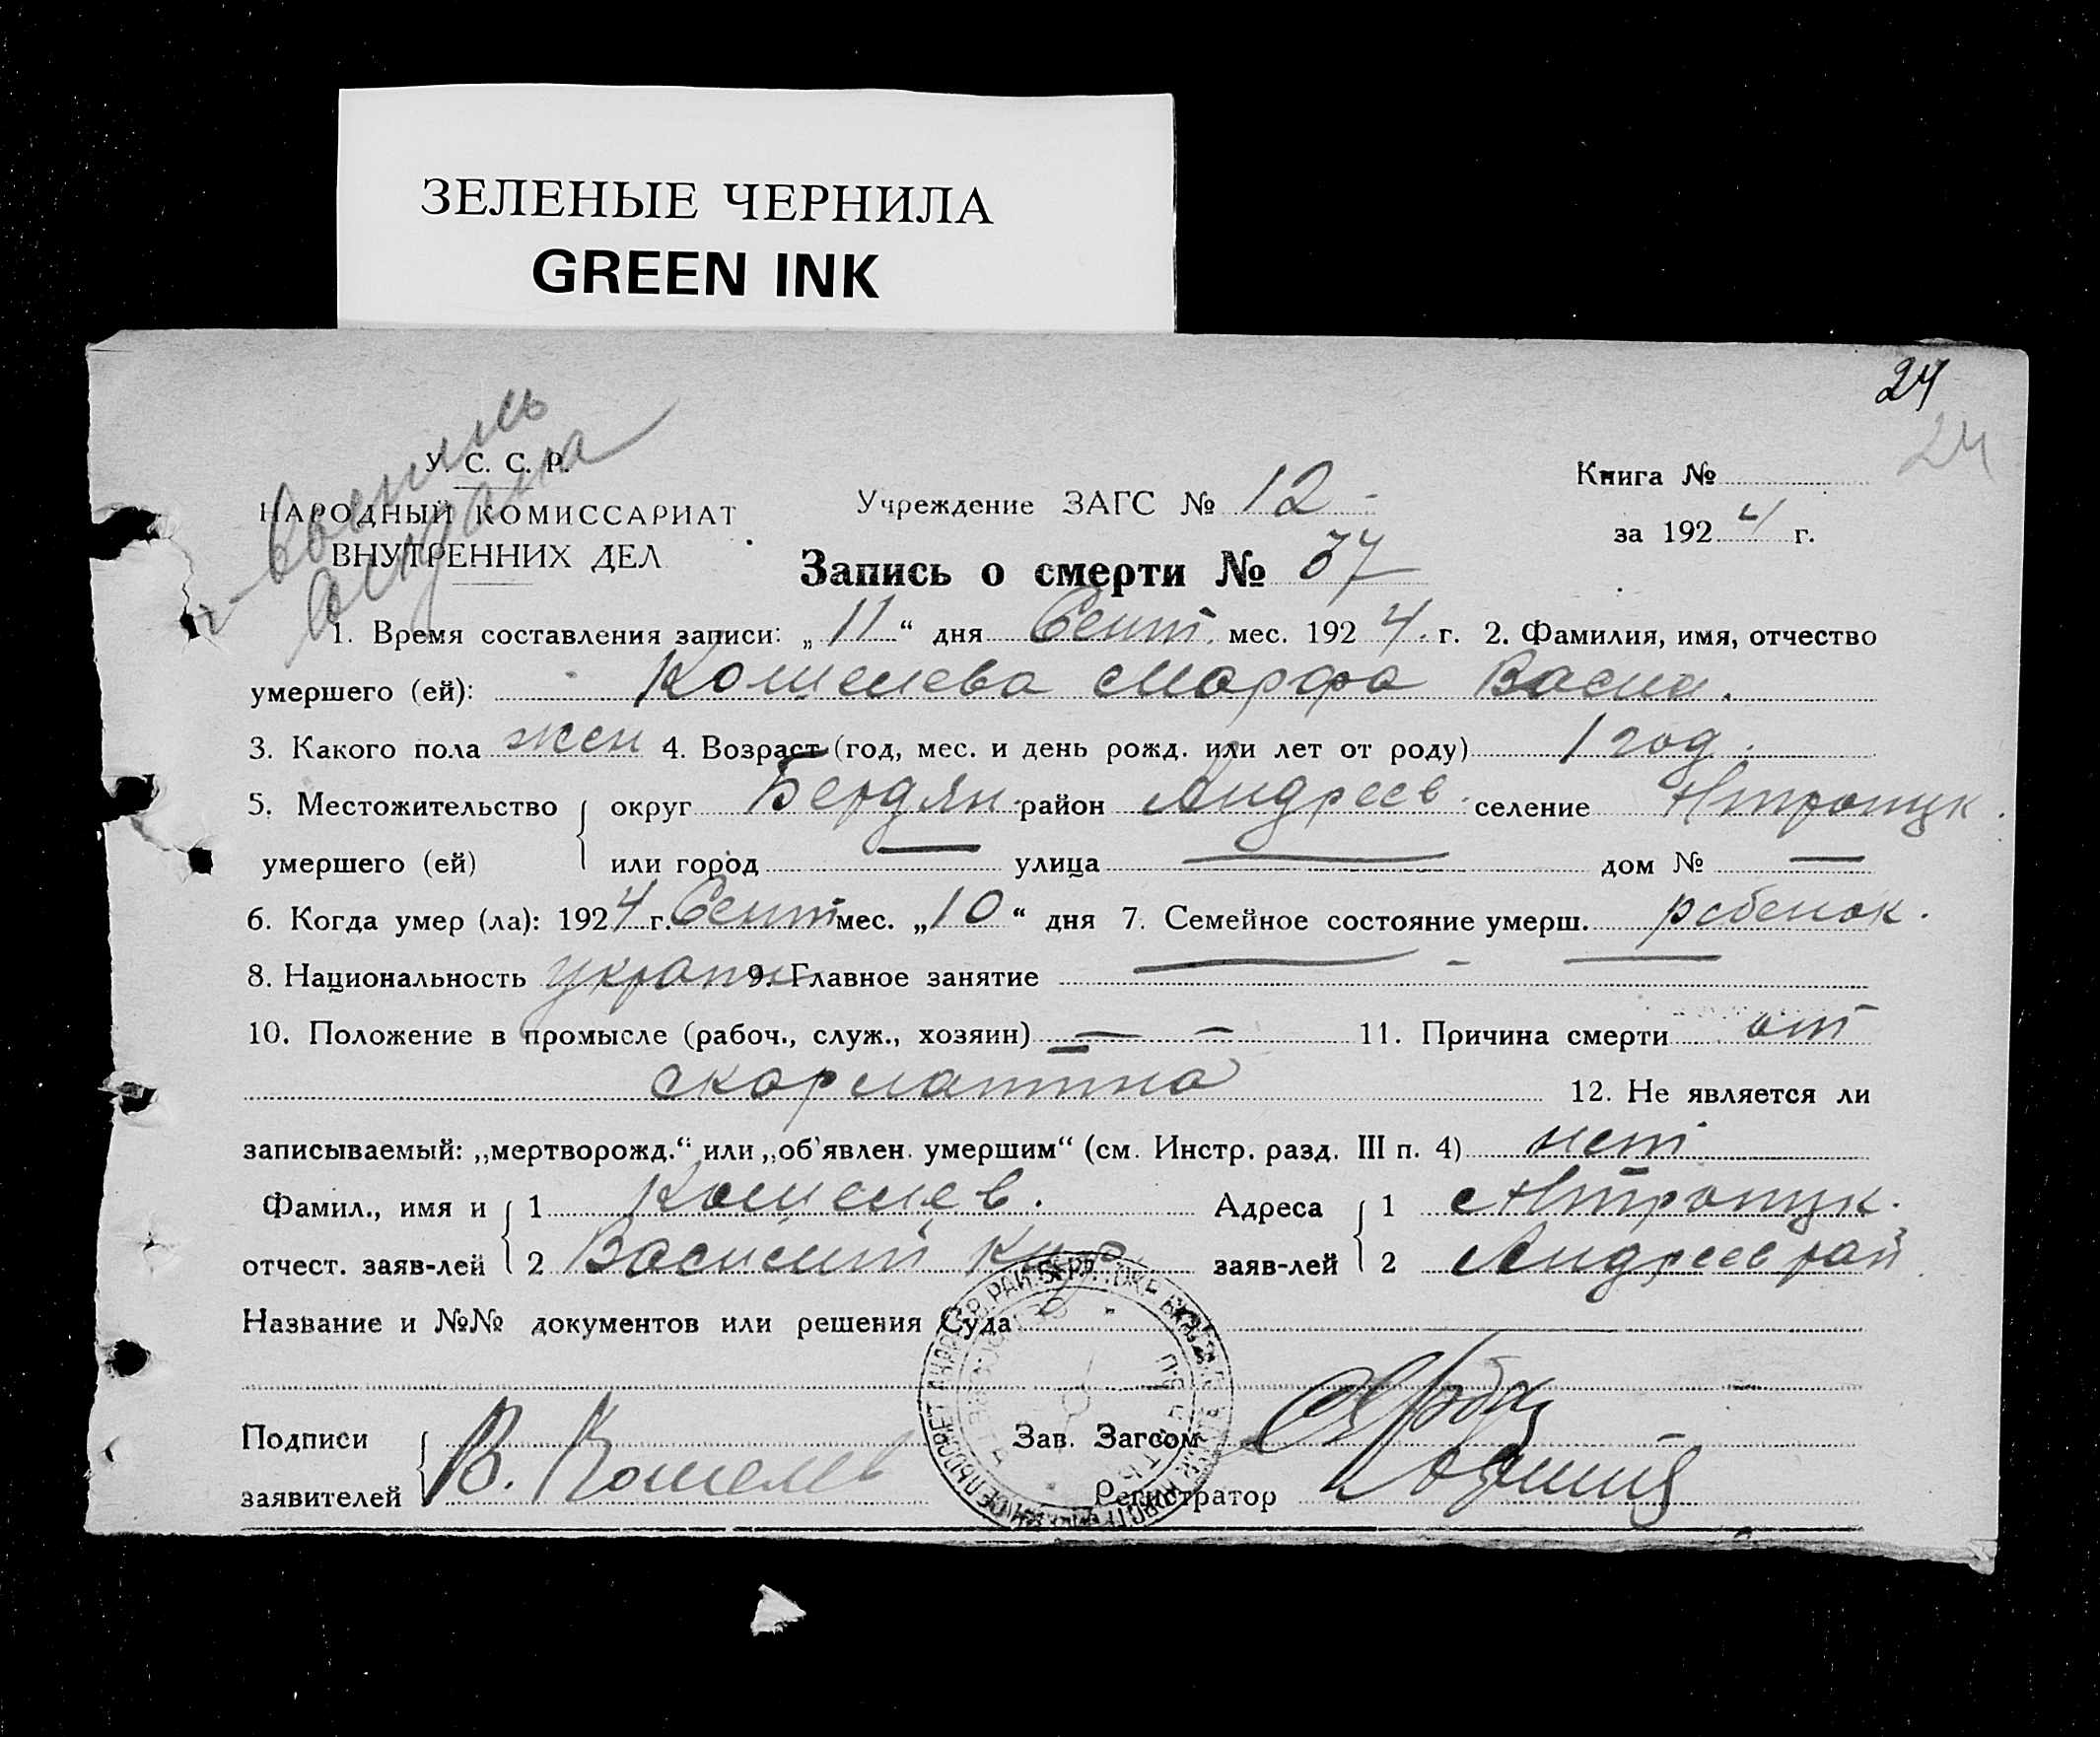 ЗЕЛЕНЫЕ ЧЕРНИЛА
GREEN INK
24
24
У. С. С. Р.
НАРОДНЫЙ КОМИССАРИАТ
ВНУТРЕННИХ ДЕЛ
Учреждение ЗАГС № 12
Книга №
за 1924 г.
Запись о смерти № 37
1. Время составления записи: „11“ дня Сент. мес. 1924. г. 2. Фамилия, имя, отчество
умершего (ей): Кошелева Марфа Васил.
3. Какого пола жен 4. Возраст (год, мес. и день рожд. или лет от роду) 1 год.
5. Местожительство округ Бердян. район Андреев. селение
умершего (ей) или город — улица — дом № —
6. Когда умер (ла): 1924 г. Сент мес. „10“ дня 7. Семейное состояние умерш. ребенок.
8. Национальность украин 9. Главное занятие — —
10. Положение в промысле (рабоч., служ., хозяин) — — 11. Причина смерти от
скарлатина 12. Не является ли
записываемый: „мертворожд.“ или „об’явлен. умершим“ (см. Инстр. разд. III п. 4) нет
Фамил., имя и 1 Кошелев. Адреса 1
отчест. заяв-лей 2 Василий заяв-лей 2 Андреев рай.
Название и №№ документов или решения Суда
Подписи В. Кошелев Зав. Загсом
заявителей Регистратор